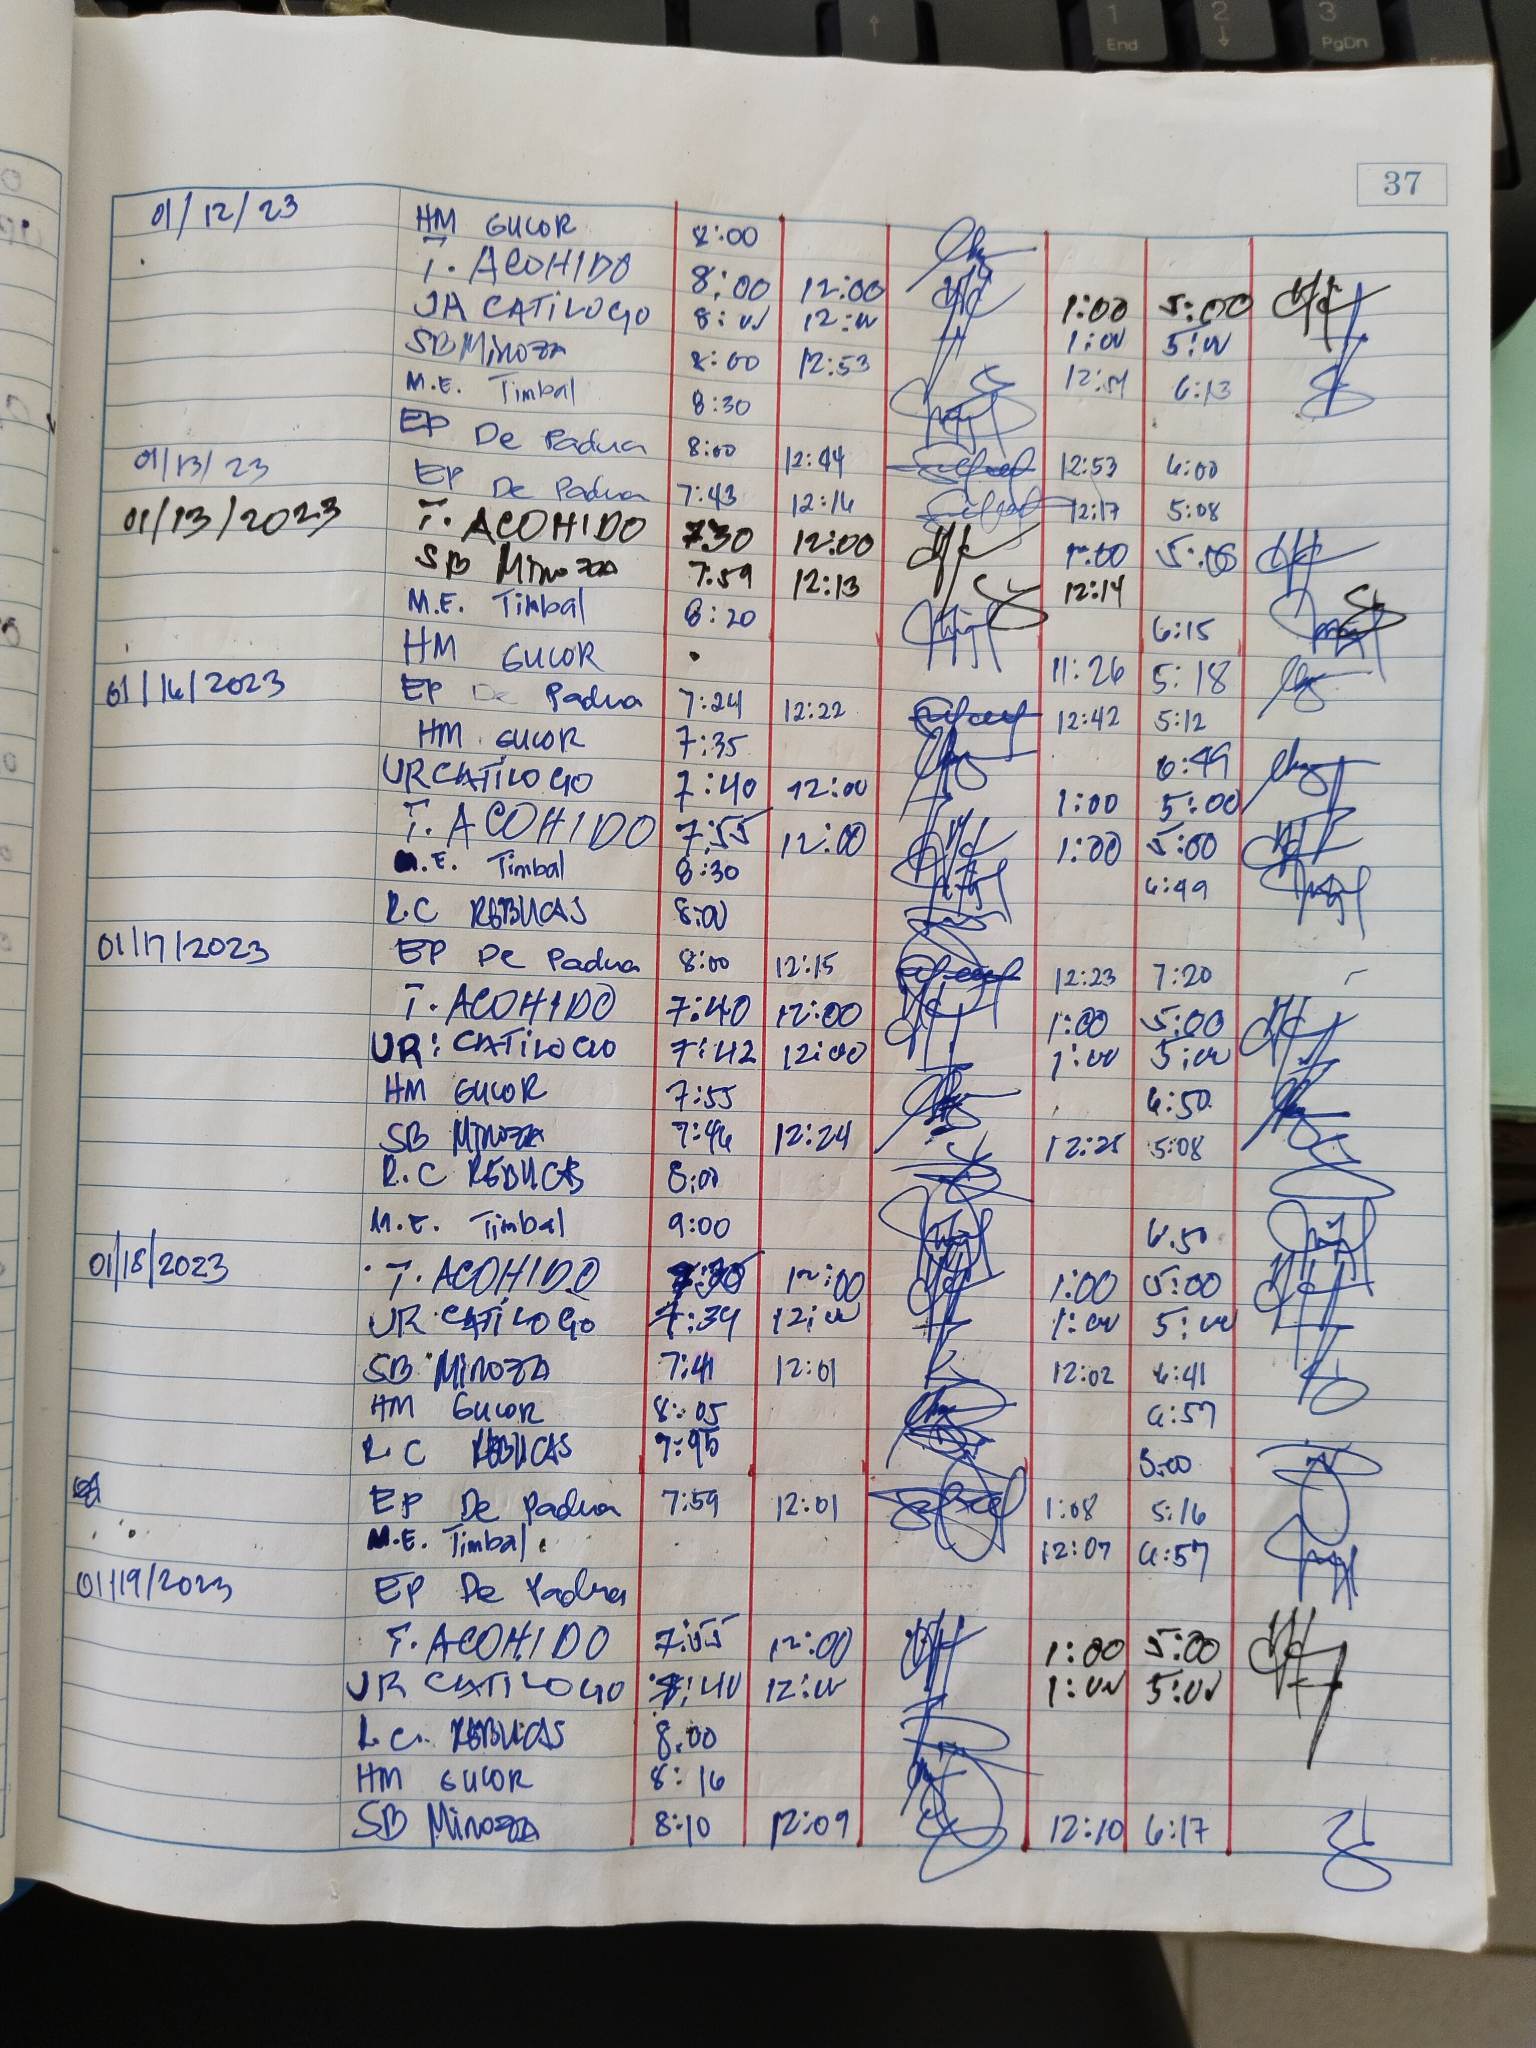 1 End
2
3 PgDn
37
01/12/23 HM GUCOR 8:00
T. ACOHIDO 8:00 12:00 1:00 5:00
UR CATILOGO 8:00 12:00 1:00 5:00
SB Minoza 8:00 12:53 12:54 6:13
M.E. Timbal 8:30
EP De Padua 8:00 12:44 12:53 6:00
01/13/23 EP De Padua 7:43 12:16 12:17 5:08
01/13/2023 T. ACOHIDO 7:30 12:00 1:00 5:00
SB Minoza 7:59 12:13 12:14
M.E. Timbal 8:20 6:15
HM GUCOR 11:26 5:18
01/16/2023 EP De Padua 7:24 12:22 12:42 5:12
HM GUCOR 7:35 6:49
UR CATILOGO 7:40 12:00 1:00 5:00
T. ACOHIDO 7:55 12:00 1:00 5:00
M.E. Timbal 8:30 6:49
R.C REBUCAS 8:00
01/17/2023 EP De Padua 8:00 12:15 12:23 7:20
T. ACOHIDO 7:40 12:00 1:00 5:00
UR: CATILOGO 7:42 12:00 1:00 5:00
HM GUCOR 7:55 6:50
SB Minoza 7:46 12:24 12:25 5:08
R.C REBUCAS 8:00
M.E. Timbal 9:00 6:50
01/18/2023 T. ACOHIDO 7:30 12:00 1:00 5:00
UR CATILOGO 7:34 12:00 1:00 5:00
SB Minoza 7:41 12:01 12:02 6:41
HM GUCOR 8:05 6:57
R.C REBUCAS 7:45 5:00
EP De Padua 7:59 12:01 1:08 5:16
M.E. Timbal 12:07 6:57
01/19/2023 EP De Padua
T. ACOHIDO 7:55 12:00 1:00 5:00
UR CATILOGO 7:40 12:00 1:00 5:00
R.C. REBUCAS 8:00
HM GUCOR 8:16
SB Minoza 8:10 12:09 12:10 6:17